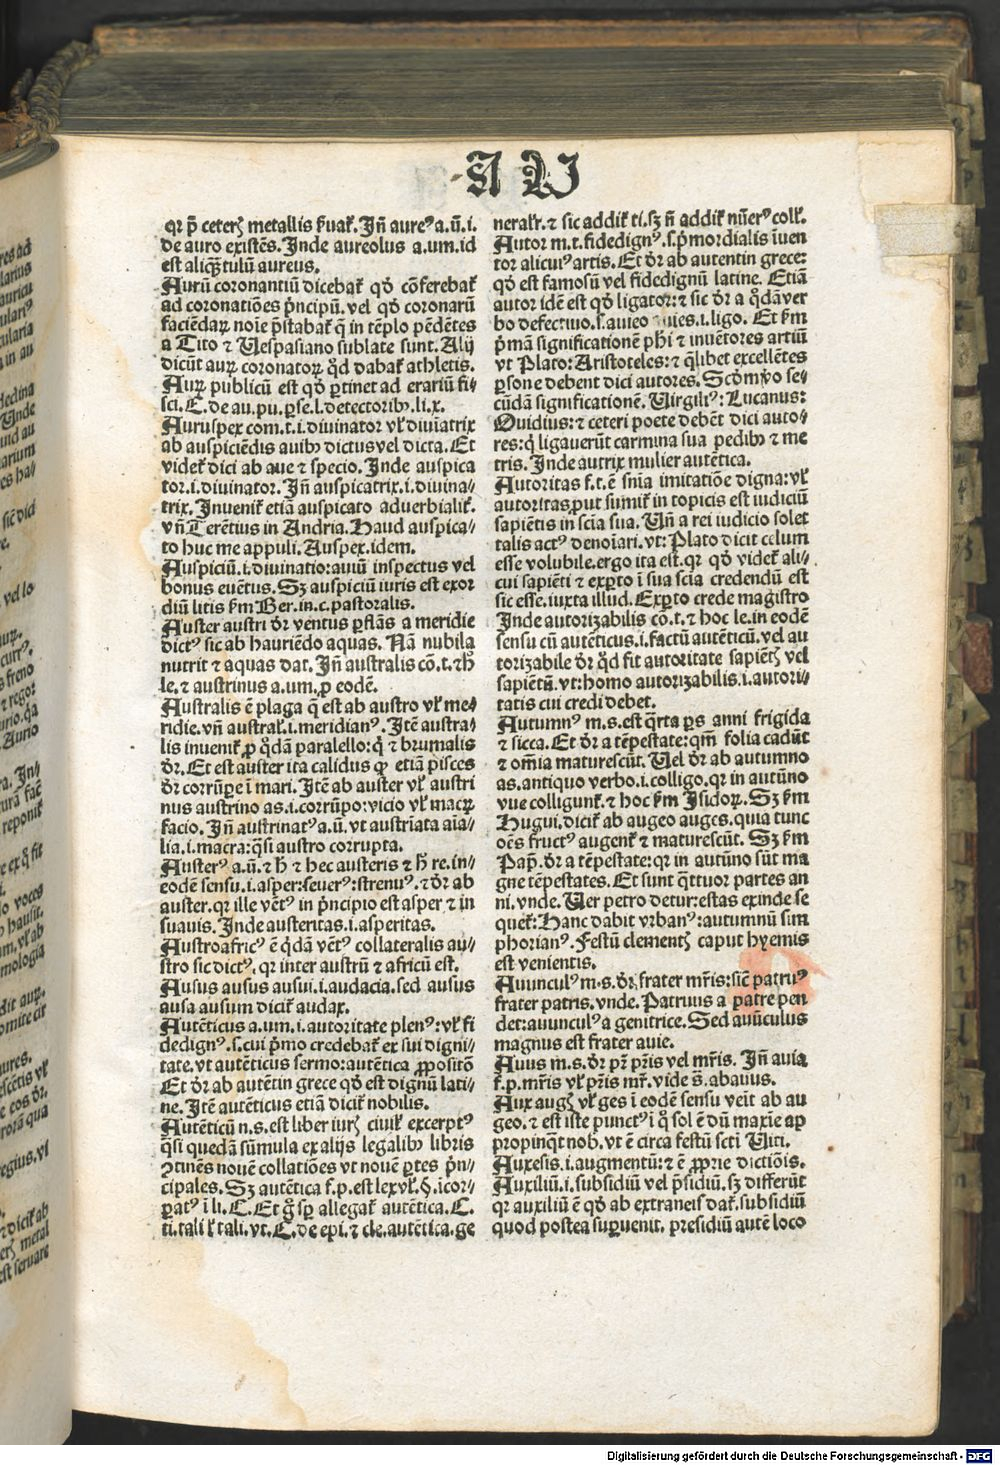 A U
qr p̄ ceterꝭ metallis ẜuat᷑. Jn̄ aureꝰ a.ū.i.
de auro existēs. Jnde aureolus a.um.id
est aliqꝫtulū aureus.
Aurū coronantiū dicebat᷑ qď cōferebat᷑
ad coronatiōes pͥncipū. vel qď coronarū
faciēdaꝝ noīe p̄stabat᷑ q̄ in tēplo pēdētes
a Tito ⁊ Uespasiano sublate sunt. Alij
dicūt auꝝ coronatoꝝ qďd dabat᷑ athletis.
Auꝝ publicū est qď ꝑtinet ad erariū fi⸗
sci. C. de au. pu. ꝑse.l.detectorib⁹.li.x.
Auruspex com.t.i.diuinator vl̓ diuīatrix
ab auspiciēdis auib⁹ dictus vel dicta. Et
videt᷑ dici ab aue ⁊ specio. Jnde auspica
tor.i.diuinator. Jn̄ auspicatrix.i.diuina⸗
trix. Jnuenit᷑ etiā auspicato aduerbialit᷑.
vn̄ Terētius in Andria. Haud auspica⸗
to huc me appuli. Auspex.idem.
Auspiciū.i.diuinatio: auiū inspectus vel
bonus euētus. Sꝫ auspiciū iuris est exor
diū litis ẜm Ber. in.c. pastoralis.
Auster austri dr̄ ventus ꝑflās a meridie
dictꝰ sic ab hauriēdo aquas. Nā nubila
nutrit ⁊ aquas dat. Jn̄ australis cō.t.⁊ h̄
le.⁊ austrinus a.um.ꝓ eodē.
Australis ē plaga q̄ est ab austro vl̓ me⸗
ridie. vn̄ austral̓.i.meridianꝰ. Jtē austra⸗
lis inuenit᷑ ꝓ qͦdā paralello: qͥ ⁊ brumalis
dr̄. Et est auster ita calidus ꝙ etiā pisces
dr̄ corrūpe ī mari. Jtē ab auster vl̓ austri
nus austrino as.i.corrūpo: vicio vl̓ macꝝ
facio. Jn̄ austrinatꝰ a.ū. vt austrīata aīa⸗
lia.i.macra: qͣsi austro corrupta.
Austerꝰ a.ū.⁊ h̄ ⁊ hec austeris ⁊ h̄ re.in⸗
eodē sensu.i.asper: seuerꝰ: strenuꝰ. ⁊ dr̄ ab
auster. qr ille vētꝰ in pͥncipio est asper ⁊ in
suauis. Jnde austeritas.i.asperitas.
Austroafricꝰ ē qͥdā vētꝰ collateralis au⸗
stro sic dictꝰ. qr inter austrū ⁊ africū est.
Ausus ausus ausui.i.audacia. sed ausus
ausa ausum dicit᷑ audax.
Autēticus a.um.i.autoritate plenꝰ: vl̓ fi
dedignꝰ.s.cui pͥmo credebat᷑ ex sui digni⸗
tate. vt autēticus sermo: autētica ꝓpositō
Et dr̄ ab autētin grece qď est dignū lati⸗
ne. Jtē autēticus etiā dicit᷑ nobilis.
Autēticū n.s. est liber iurꝭ ciuil̓ excerptꝰ
qͣsi quedā sūmula ex alijs legalib⁹ libris
ꝯtinēs nouē collatiōes vt nouē ꝑtes pͥn⸗
cipales. Sꝫ autētica f.p. est lex vl̓.§.icor⸗
patꝰ ī li. C. Et qͥ sꝑ allegat᷑ autētica. C.
ti.tali l̓ tali. vt. C. de epi.⁊ cle. autētica. ge
neral̓r. ⁊ sic addit᷑ ti. sꝫ n̄ addit᷑ nūerꝰ coll̓.
Autor m.t. fidedignꝰ.s.pͥmordialis īuen
tor alicuiꝰ artis. Et dr̄ ab autentin grece:
qď est famosū vel fidedignū latine. Etiā
autor idē est qď ligator: ⁊ sic dr̄ a qͦdā ver
bo defectiuo.s.auieo uies.i.ligo. Et ẜm
pͥmā significationē phī ⁊ inuētores artiū
vt Plato: Aristoteles: ⁊ qͥlibet excellētes
ꝑsone debent dici autores. Scďm vo se⸗
cūdā significationē. Uirgiliꝰ: Lucanus:
Ouidius: ⁊ ceteri poete debēt dici auto⸗
res: qͥ ligauerūt carmina sua pedib⁹ ⁊ me
tris. Jnde autrix mulier autētica.
Autoritas f.t. ē snīa imitatiōe digna: vl̓
autoritas ꝓut sumit᷑ in topicis est iudiciū
sapiētis in scīa sua. Un̄ a rei iudicio solet
talis actꝰ denoīari. vt: Plato dicit celum
esse volubile. ergo ita est. qr qď videt᷑ ali⸗
cui sapiēti ⁊ exꝑto ī sua scīa credendū est
sic esse. iuxta illud. Exꝑto crede magistro
Jnde autorizabilis cō.t.⁊ hoc le. in eodē
sensu cū autēticus.i.factū autēticū. vel au
torizabile dr̄ qďd fit autoritate sapiētꝭ vel
sapiētū. vt: homo autorizabilis.i.autori⸗
tatis cui credi debet.
Autumnꝰ m.s. est qͣrta ꝑs anni frigida
⁊ sicca. Et dr̄ a tēpestate: qm̄ folia cadūt
⁊ om̄ia maturescūt. Uel dr̄ ab autumno
as. antiquo verbo.i.colligo. qr in autūno
vue colligunt᷑. ⁊ hoc ẜm Jsidoꝝ. Sꝫ ẜm
Hugui. dicit᷑ ab augeo auges. quia tunc
oēs fructꝰ augent᷑ ⁊ maturescūt. Sꝫ ẜm
Pap̄. dr̄ a tēpestate: qr in autūno sūt ma
gne tēpestates. Et sunt qͣttuor partes an
ni. vnde. Uer petro detur: estas exinde se
quet᷑: Hanc dabit vrbanꝰ: autumnū sim
phorianꝰ. Festū clementꝭ caput hyemis
est venientis.
Auunculꝰ m.s. dr̄ frater mr̄is: sic̄ patruꝰ
frater patris. vnde. Patruus a patre pen
det: auunculꝰ a genitrice. Sed auūculus
magnus est frater auie.
Auus m.s. dr̄ pr̄ pr̄is vel mr̄is. Jn̄ auia
f.p. mr̄is vl̓ pr̄is mr̄. vide s̄. abauus.
Aux augꝭ vl̓ ges ī eodē sensu veīt ab au
geo. ⁊ est iste punctꝰ ī qͦ sol ē dū maxīe ap
propinqͣt nob. vt ē circa festū scti Uiti.
Auxesis.i.augmentū: ⁊ ē ꝓprie dictiōis.
Auxiliū.i.subsidiū vel p̄sidiū. sꝫ differūt
qr auxiliū ē qď ab extraneis dat᷑. subsidiū
quod postea suꝑuenit. presidiū autē loco
Digitalisierung gefördert durch die Deutsche Forschungsgemeinschaft - DFG